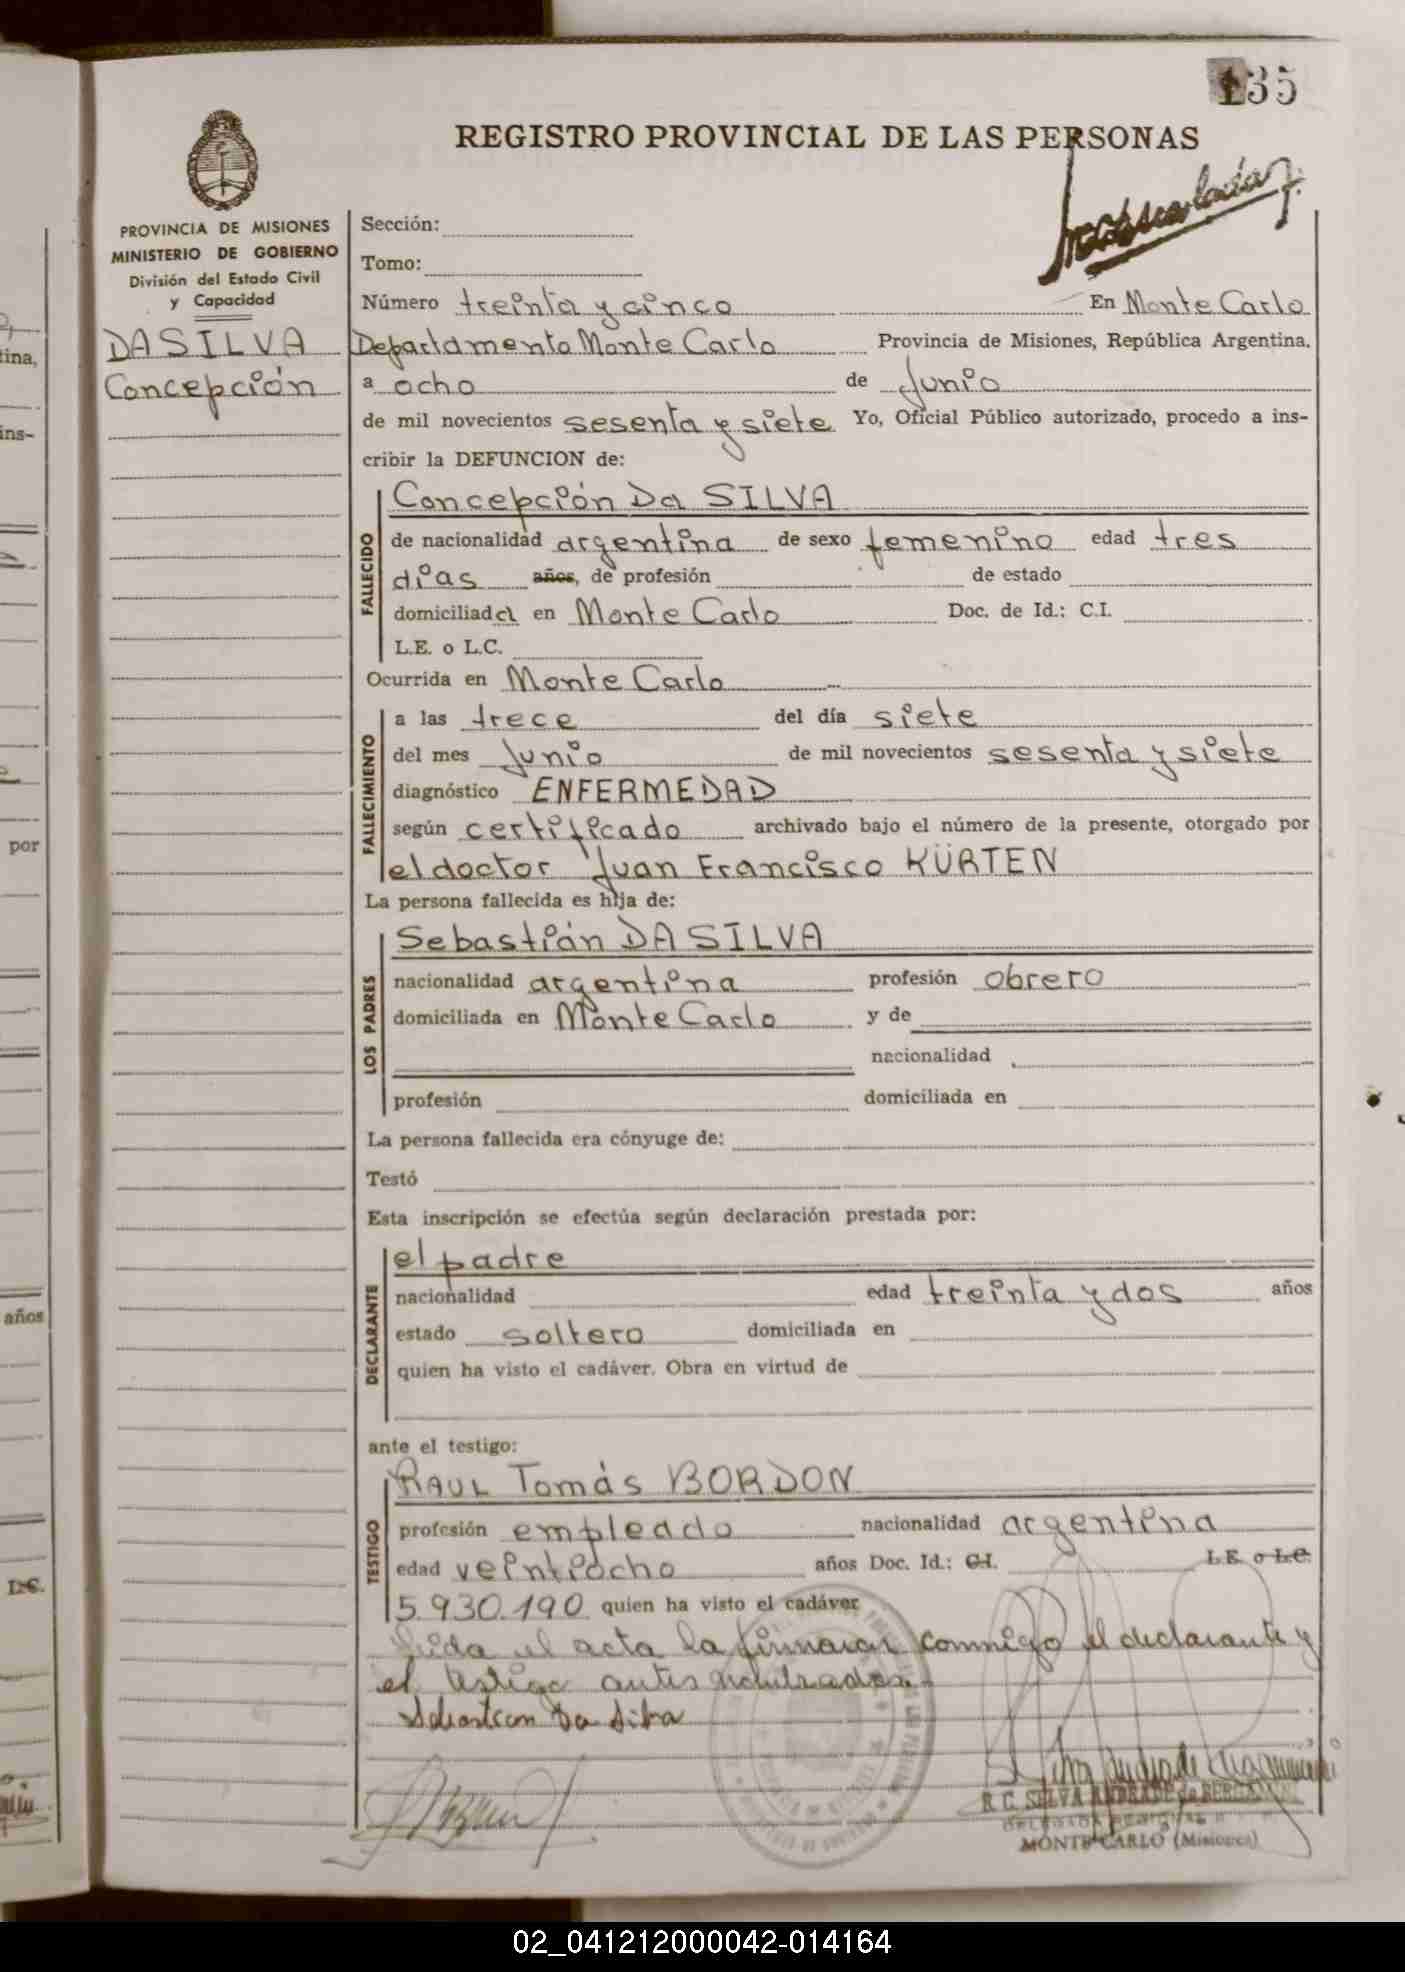 135
REGISTRO PROVINCIAL DE LAS PERSONAS
PROVINCIA DE MISIONES
MINISTERIO DE GOBIERNO
División del Estado Civil
y Capacidad
DA SILVA
Concepción
Sección:
Tomo:
Número treinta y cinco En Monte Carlo
Departamento Monte Carlo Provincia de Misiones, República Argentina,
a ocho de Junio
de mil novecientos sesenta y siete Yo, Oficial Público autorizado, procedo a ins-
cribir la DEFUNCION de:
FALLECIDO
Concepción Da SILVA
de nacionalidad argentina de sexo femenino edad tres
días años, de profesión de estado
domiciliada en Monte Carlo Doc. de Id.: C.I.
L.E. o L.C.
Ocurrida en Monte Carlo
FALLECIMIENTO
a las trece del día siete
del mes Junio de mil novecientos sesenta y siete
diagnóstico ENFERMEDAD
según certificado archivado bajo el número de la presente, otorgado por
el doctor Juan Francisco KÜRTEN
La persona fallecida es hija de:
LOS PADRES
Sebastián DA SILVA
nacionalidad argentina profesión obrero
domiciliada en Monte Carlo y de
nacionalidad
profesión domiciliada en
La persona fallecida era cónyuge de:
Testó
Esta inscripción se efectúa según declaración prestada por:
DECLARANTE
el padre
nacionalidad edad treinta y dos años
estado soltero domiciliada en
quien ha visto el cadáver. Obra en virtud de
ante el testigo:
TESTIGO
RAUL Tomás BORDON
profesión empleado nacionalidad argentina
edad veintiocho años Doc. Id.: C.I. L.E. o L.C.
5.930.190 quien ha visto el cadáver
leida el acta la firmaron conmigo el declarante y
el testigo antes nombrados.-
Sebastian Da Silva
R. C. SILVA ANDRADE de
DELEGADA REGIONAL
MONTE CARLO (Misiones)
tina,
ins-
por
años
L.C.
02_041212000042-014164